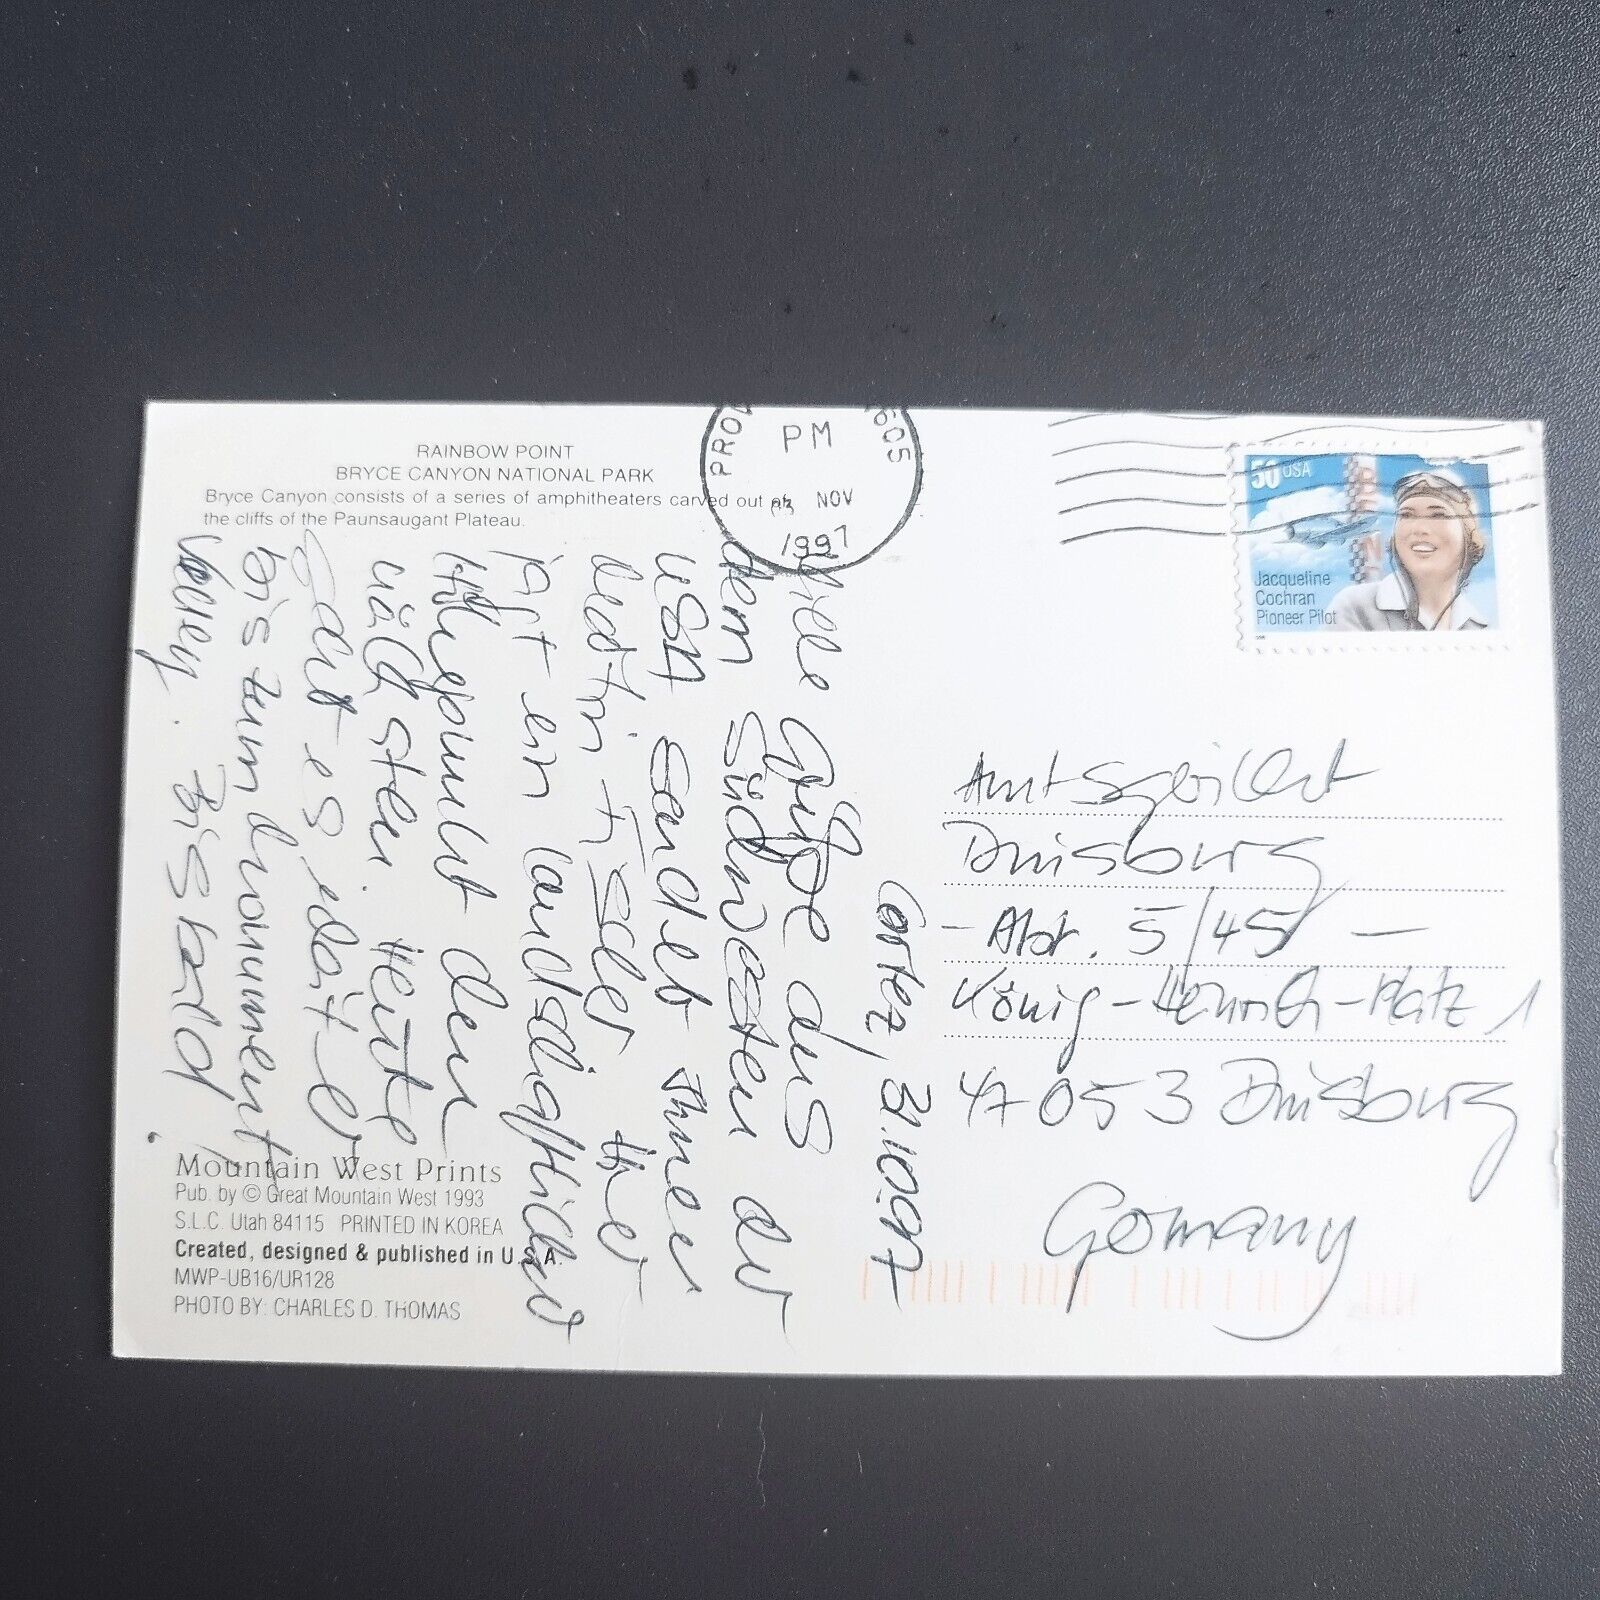 RAINBOW POINT
BRYCE CANYON NATIONAL PARK
Bryce Canyon consists of a series of amphitheaters carved out
the cliffs of the Paunsaugant Plateau.
PM
NOV
1997
50 USA
Jacqueline
Cochran
Pioneer Pilot
Cortez, 31.10.97
Viele Grüße aus
dem Südwesten der
USA sendet Ihnen
Hier
ist ein landschaftlicher
Höhepunkt den
nächsten. Heute
geht es
bis zum Monument
Valley. Bis bald!
Amtsgericht
Duisburg
- Abt. 5/45 -
König-Heinrich-Platz 1
47053 Duisburg
Germany
Mountain West Prints
Pub. by © Great Mountain West 1993
S.L.C. Utah 84115 PRINTED IN KOREA
Created, designed & published in U.S.A.
MWP-UB16/UR128
PHOTO BY: CHARLES D. THOMAS